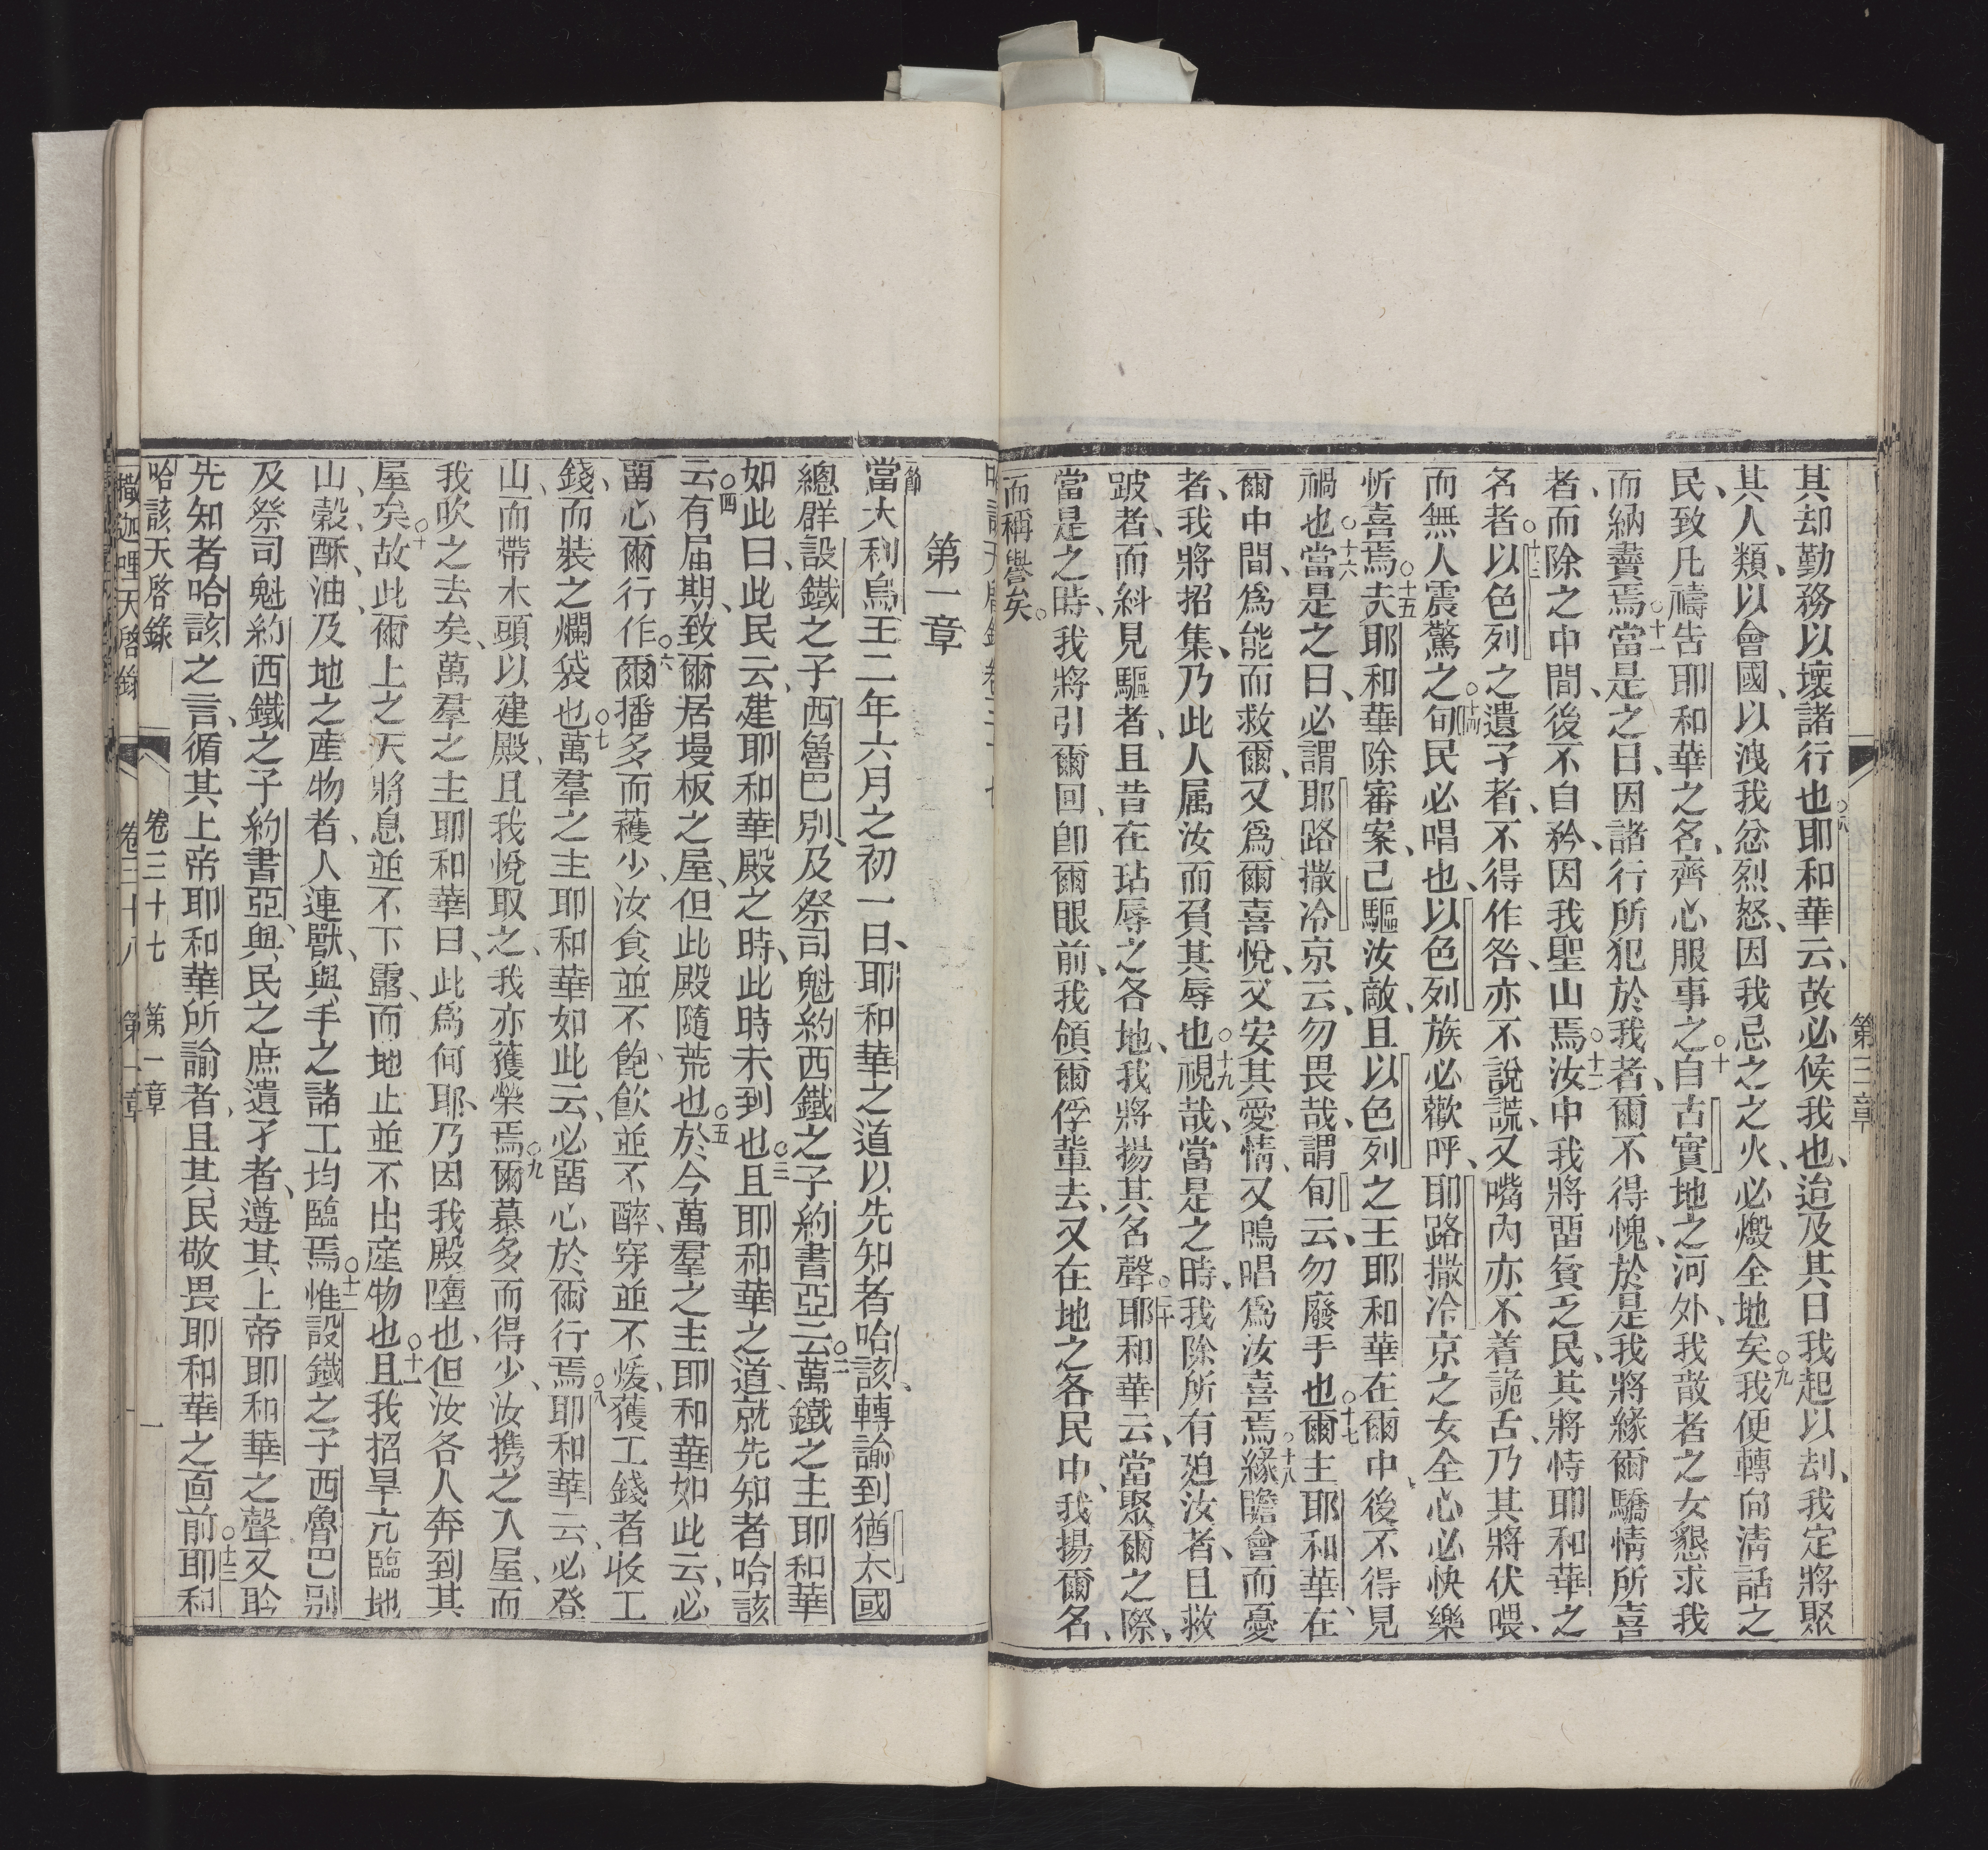 第三章
其却勤務以壞諸行也○八耶和華云、故必候我也、迨及其日我起以刦、我定將聚
其人類、以會國、以洩我忿烈怒、因我忌之之火、必燬全地矣○九我便轉向清話之
民、致凡禱告耶和華之名、齊心服事之○十自古實地之河外、我散者之女懇求我
而納賣焉○十一當是之日、因諸行所犯於我者、爾不得愧、於是我將緣爾驕情所喜
者、而除之中間、後不自矜、因我聖山焉○十二汝中我將畱貧乏民、其將恃耶和華之
名者○十三以色列之遺孑者、不得作咎、亦不說謊、又嘴內亦不着詭舌、乃其將伏喂、
而無人震驚之○十四旬民必唱也、以色列族必歡呼、耶路撒冷京之女全心必快樂
忻喜焉○十五夫耶和華除審案、己驅汝敵、且以色列之王耶和華在爾中、後不得見
禍也○十六當是之日、必謂耶路撒冷京云、勿畏哉、謂旬云、勿廢手也○十七爾主耶和華、在
爾中間、為能而救爾、又為爾喜悅、又安其愛情、又鳴唱為汝喜焉○十八緣瞻會而憂
者、我將招集、乃此人属汝而負其辱也○十九視哉、當是之時、我除所有廹汝者、且救
跛者、而糾見驅者、且昔在玷辱之各地、我將揚其名聲○二十耶和華云、當聚爾之際、
當是之時、我將引爾回、卽爾眼前、我領爾俘輩去、又在地之各民中、我揚爾名、
而稱譽矣。
第一章
節當大利烏王二年六月之初一日、耶和華之道以先知者哈該、轉諭到猶太國
總群設鐵之子西魯巴別、及祭司魁約西鐵之子約書亞云○二萬鐵之主耶和華
如此曰、此民云、建耶和華殿之時、此時未到也○三且耶和華之道、就先知者哈該
云○四有届期、致爾居墁板之屋、但此殿隨荒也○五於今萬羣之主耶和華如此云、必
畱心爾行作○六爾播多而穫少、汝食並不飽、飲並不醉、穿並不煖、獲工錢者收工
錢、而裝之爛袋也○七萬羣之主耶和華如此云、必畱心於爾行焉○八耶和華云、必登
山、而帶木頭以建殿、且我悅取之、我亦獲榮焉○九爾慕多而得少、汝携之入屋、而
我吹之去矣、萬羣之主耶和華曰、此為何耶、乃因我殿墮也、但汝各人奔到其
屋矣○十故此爾上之天將息並不下露、而地止並不出產物也○十一且我招旱亢臨地
山、穀、酥、油、及地之產物者、人連獸、與手之諸工均臨焉○十二惟設鐵之子西魯巴別
及祭司魁約西鐵之子約書亞、與民之庶遺孑者、遵其上帝耶和華之聲、又聆
先知者哈該之言、循其上帝耶和華所諭者、且其民敬畏耶和華之面前○十三耶和
哈該天啓錄 卷三十七 第一章 一
撒迦哩天啓錄 卷三十八 第一章